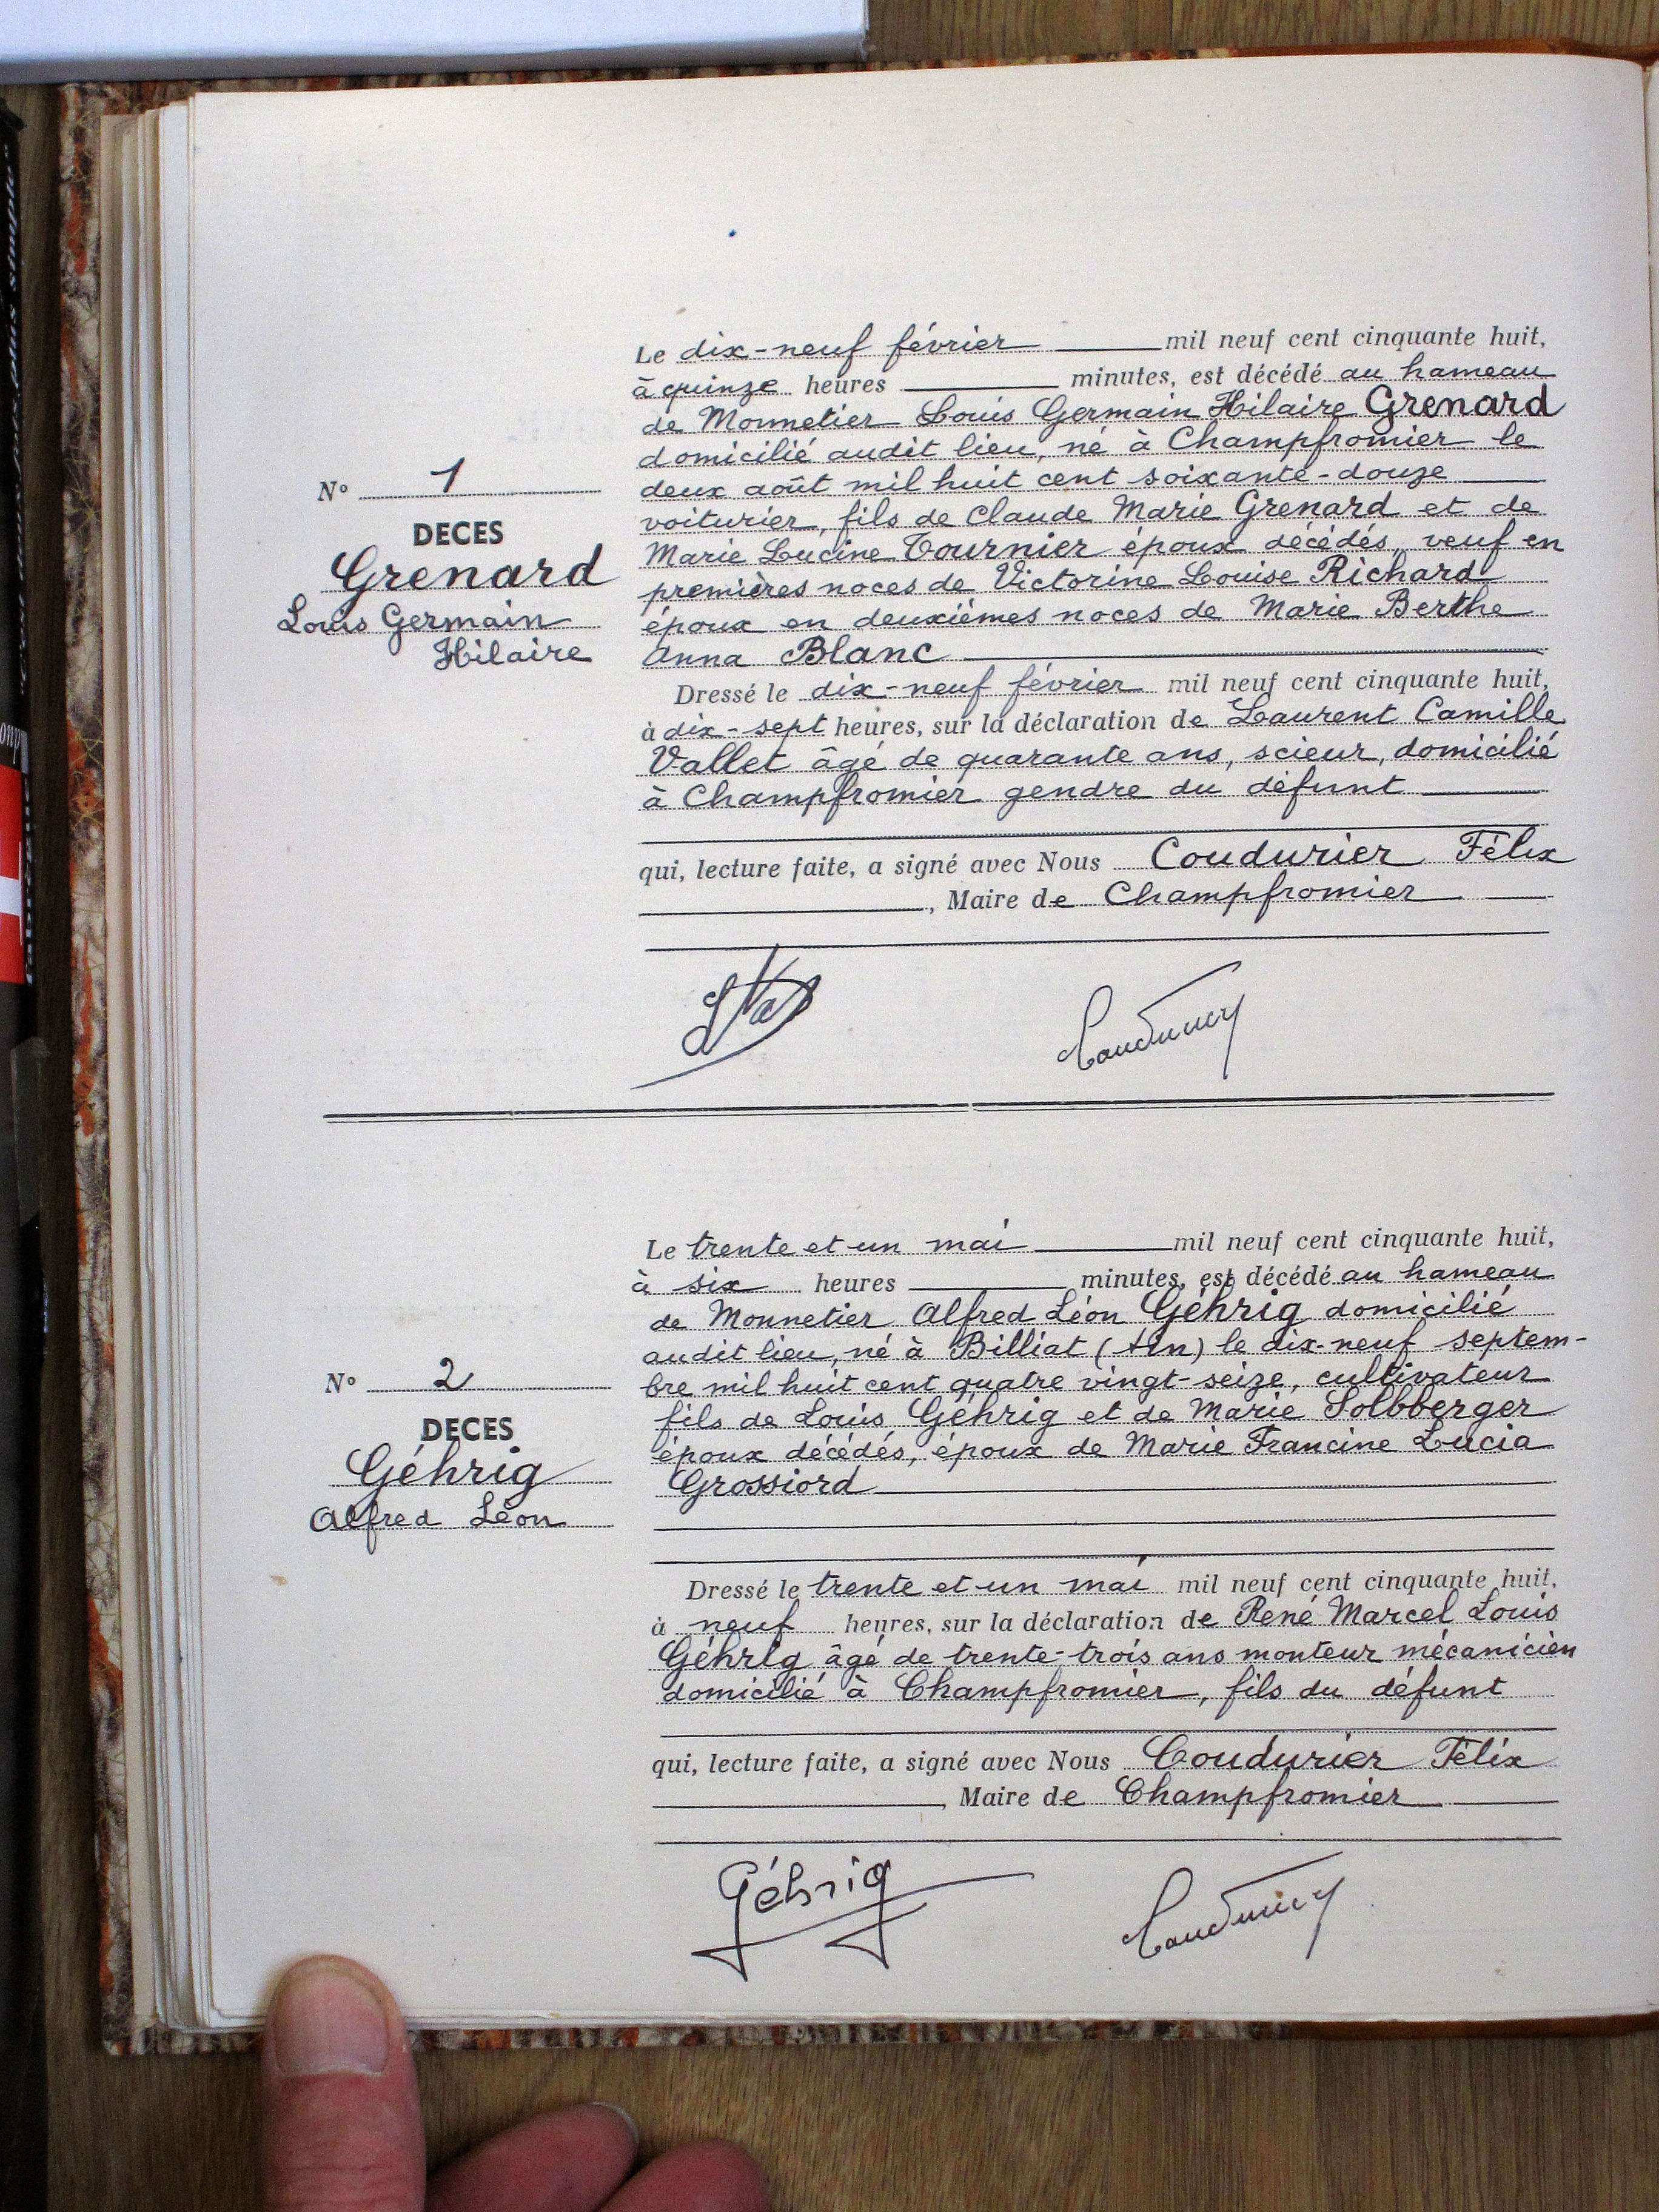 Le dix-neuf février mil neuf cent cinquante huit,
à quinze heures minutes, est décédé au hameau
de Monnetier Louis Germain Hilaire Grenard
domicilié audit lieu, né à Champfromier le
deux août mil huit cent soixante-douze
voiturier, fils de Claude Marie Grenard et de
Marie Lucine Tournier époux décédés, veuf en
premières noces de Victorine Louise Richard
époux en deuxièmes noces de Marie Berthe
Anna Blanc
N° 1
DECES
Grenard
Louis Germain
Hilaire
Dressé le dix-neuf février mil neuf cent cinquante huit,
à dix-sept heures, sur la déclaration de Laurent Camille
Vallet âgé de quarante ans, scieur, domicilié
à Champfromier gendre du défunt
qui, lecture faite, a signé avec Nous Coudurier Félix
, Maire de Champfromier
Le trente et un mai mil neuf cent cinquante huit,
à six heures minutes, est décédé au hameau
de Monnetier Alfred Léon Géhrig domicilié
audit lieu, né à Billiat (Ain) le dix-neuf septem-
bre mil huit cent quatre vingt-seize, cultivateur
fils de Louis Géhrig et de Marie Solbberger
époux décédés, époux de Marie Francine Lucia
Grossiord
N° 2
DECES
Géhrig
Alfred Léon
Dressé le trente et un mai mil neuf cent cinquante huit,
à neuf heures, sur la déclaration de René Marcel Louis
Géhrig âgé de trente-trois ans monteur mécanicien
domicilié à Champfromier, fils du défunt
qui, lecture faite, a signé avec Nous Coudurier Félix
, Maire de Champfromier
Géhrig